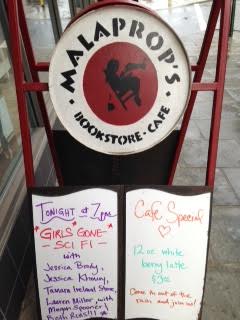 MALAPROP'S
BOOKSTORE · CAFE
TONIGHT at 7pm
"GIRLS GONE
SCI FI"
with
Jessica Brody,
Jessica Khoury,
Tamara Ireland Stone,
Lauren Miller with
Megan Spooner!
Cafe Special
12 oz white
berry latte
Come in out of the
rain and join us!